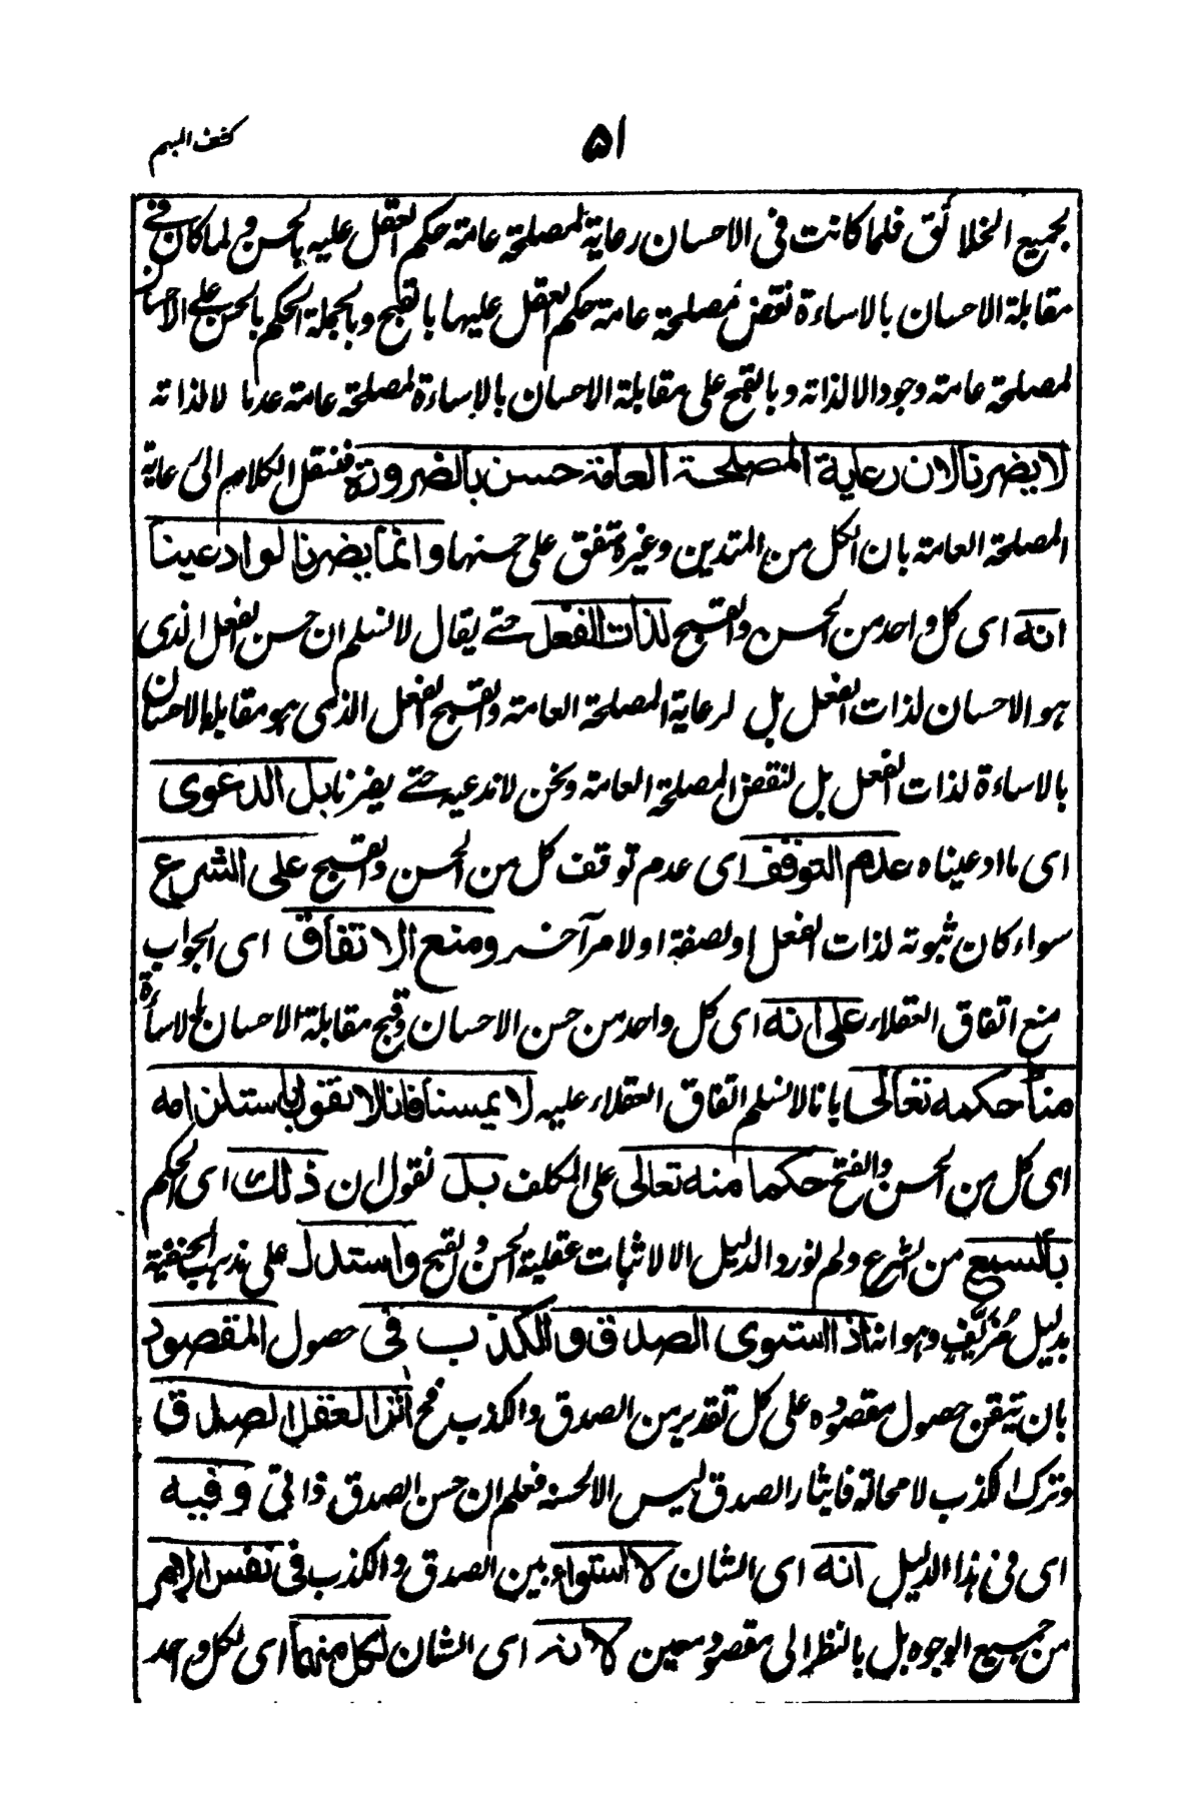 ۵۱
كشف المبهم
لجميع الخلائق فلما كانت فى الاحسان رعاية لمصلحة عامة حكم العقل عليه بالحسن و لما كان فے
مقابلة الاحسان بالاساءة نقض لمصلحة عامة حكم العقل عليها بالقبح و بالجملة الحكم بالحسن على الاحسان
لمصلحة عامة وجودا لا لذاته و بالقبح على مقابلة الاحسان بالاساءة لمصلحة عامة عدما لا لذاته
لا يضرنا لان رعاية المصلحة العامة حسن بالضرورة فننقل الكلام الى رعاية
المصلحة العامة بان الكل من المتدين وغيره متفق على حسنها وانما يضرنا لو ادعينا
انه اى كل واحد من الحسن والقبح لذات الفعل حتے يقال لا نسلم ان حسن الفعل الذى
هو الاحسان لذات الفعل بل لرعاية المصلحة العامة والقبح الفعل الذى هو مقابلة الاحسان
بالاساءة لذات الفعل بل لنقض المصلحة العامة ونحن لا ندعيه حتے يضرنا بل الدعوى
اى ما ادعيناه عدم التوقف اى عدم توقف كل من الحسن والقبح على الشرع
سواء كان ثبوته لذات الفعل او لصفة او لامر آخر ومنع الاتفاق اى الجواب
بمنع اتفاق العقلاء على انه اى كل واحد من حسن الاحسان وقبح مقابلة الاحسان بالاساءة
مناط حكمه تعالى بانا لا نسلم اتفاق العقلاء عليه لا يمسنا فانا لا نقول باستلزامه
اى كل من الحسن والقبح حكما منه تعالى على المكلف بل نقول ان ذلك اى الحكم
بالسمع من الشرع ولم نورد الدليل الا لاثبات عقلية الحسن والقبح واستدل على مذهب الحنفية
بدليل مزيف وهو انه اذا استوى الصدق والكذب فى حصول المقصود
بان تيقن حصول مقصوده على كل تقدير من الصدق والكذب فح آثر العقل الصدق
وترك الكذب لا محالة فايثار الصدق ليس الا لحسنه فعلم ان حسن الصدق ذاتى وفيه
اى فى هذا الدليل انه اى الشان لا استواء بين الصدق والكذب فى نفس الامر
من جميع الوجوه بل بالنظر الى مقصود معين لانه اى الشان لكل منهما اى لكل واحد